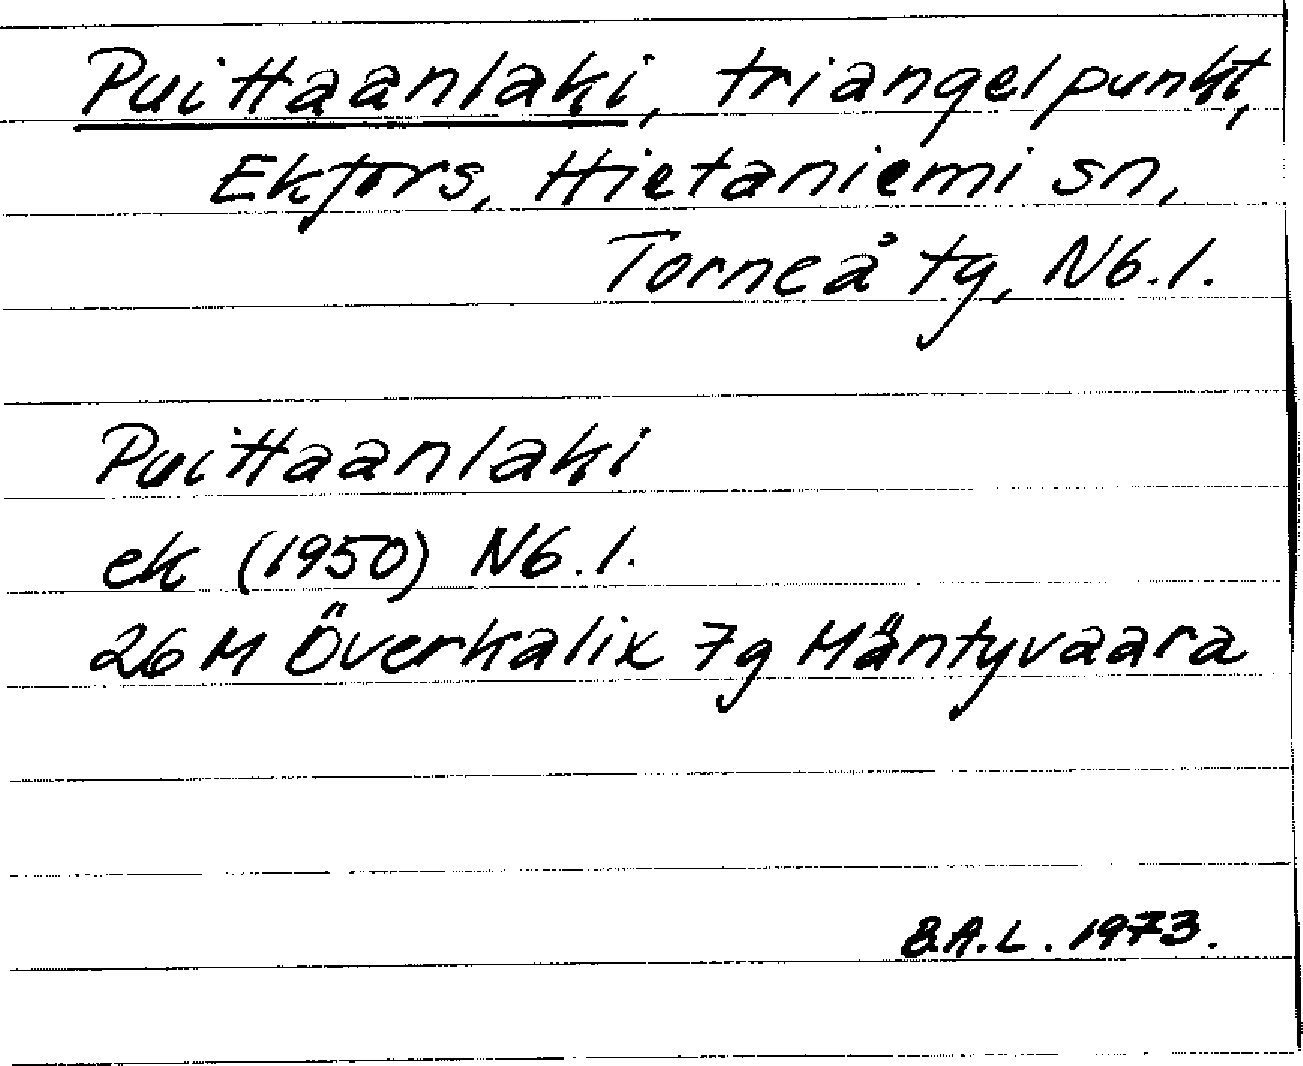 Puittaanlaki, triangelpunkt,
Ekfors, Hietaniemi sn,
Torneå tg, Nb.l.
Puittaanlaki
ek (1950) Nb.l.
26 M Överkalix 7g Mäntyvaara
B.A.L. 1973.